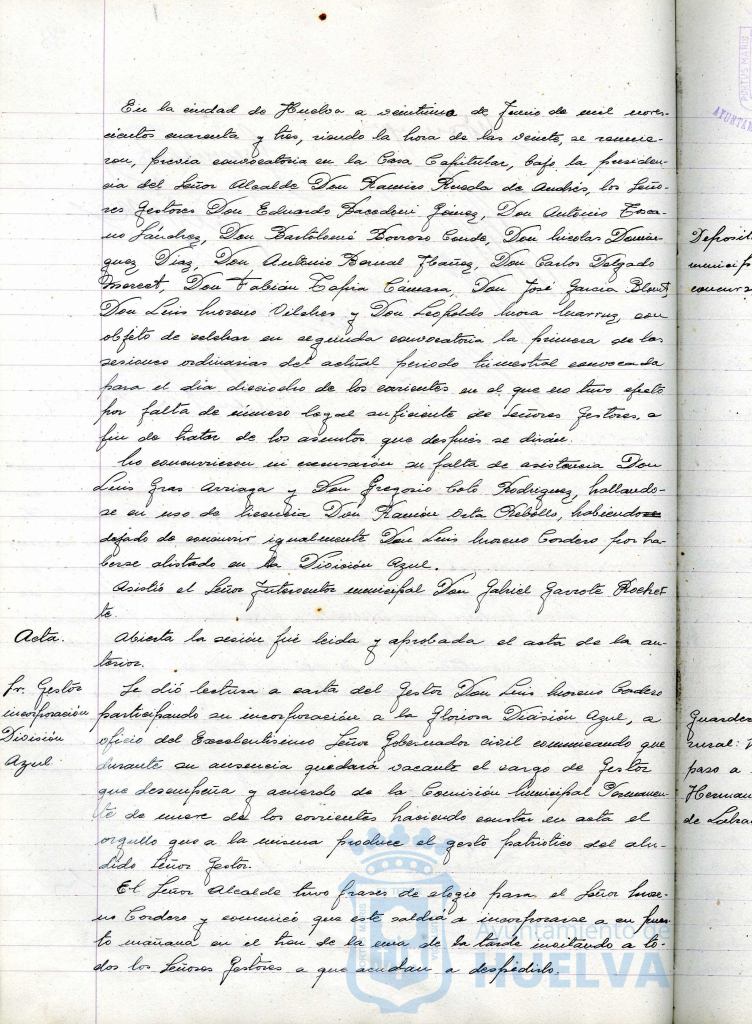 En la ciudad de Huelva a veintiuno de Junio de mil nove-
cientos cuarenta y tres, siendo la hora de las veinte, se reunie-
ron, previa convocatoria en la Casa Capitular, bajo la presiden-
cia del Señor Alcalde Don Ramiro Rueda de Andrés, los Seño-
res Gestores Don Eduardo Bacedoni Gómez, Don Antonio Tosca-
no Sánchez, Don Bartolomé Borrero Conde, Don Nicolas Domin-
guez Diaz, Don Antonio Bernal Ibañez, Don Carlos Delgado
Don Fabián Tapia Cámara, Don José Garcia
Don Luis Moreno Vilches y Don Leopoldo Mora con
objeto de celebrar en segunda convocatoria la primera de las
sesiones ordinarias del actual periodo trimestral convocada
para el dia dieciocho de los corrientes en el que no tuvo efecto
por falta de número legal suficiente de Señores Gestores, a
fin de tratar de los asuntos que después se dirán.
No concurrieron ni excusaron su falta de asistencia Don
Luis Gras Arriaga y Don Gregorio Coto Rodriguez, hallando-
se en uso de licencia Don Ramón Orta Rebollo, habiendo
dejado de concurrir igualmente Don Luis Moreno Cordero por ha-
berse alistado en la División Azul.
Asistió el Señor Interventor municipal Don Gabriel Garrote Rochet-
te.
Acta.
Abierta la sesión fué leida y aprobada el acta de la an-
terior.
Sr. Gestor
incorporación
División
Azul.
Se dió lectura a carta del Gestor Don Luis Moreno Cordero
participando su incorporación a la Gloriosa División Azul, a
oficio del Excelentísimo Señor Gobernador civil comunicando que
durante su ausencia quedará vacante el cargo de Gestor
que desempeña y acuerdo de la Comisión Municipal Permanen-
te de nueve de los corrientes haciendo constar en acta el
orgullo que a la misma produce el gesto patriotico del alu-
dido Señor Gestor.
El Señor Alcalde tuvo frases de elogio para el Señor More-
no Cordero y comunicó que este saldrá a incorporarse a su pues-
to mañana en el tren de la una de la tarde invitando a to-
dos los Señores Gestores a que acudan a despedirlo.
Deposit
municip
concurs
Guarder
rural:
paso a
Herman
de Labra
Ayuntamiento de
HUELVA